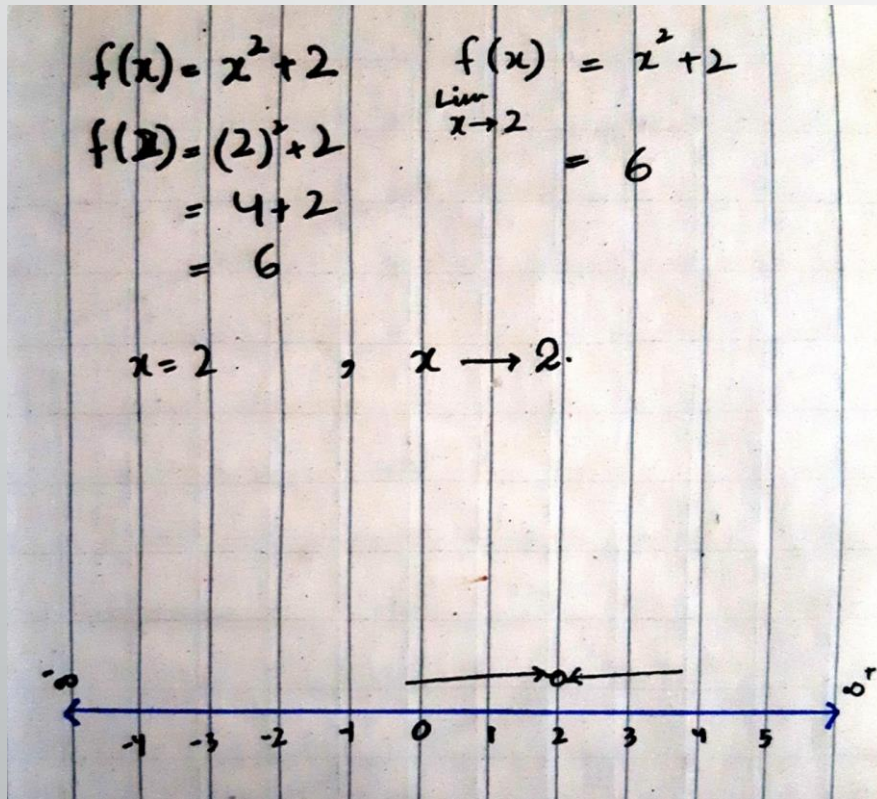 f(x) = x² + 2
f(2) = (2)² + 2
= 4 + 2
= 6
f(x) = x² + 2
Lim
x → 2
= 6
x = 2 , x → 2.
-∞ ∞⁺
-4 -3 -2 -1 0 1 2 3 4 5